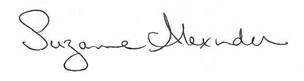 Suzanne Alexander